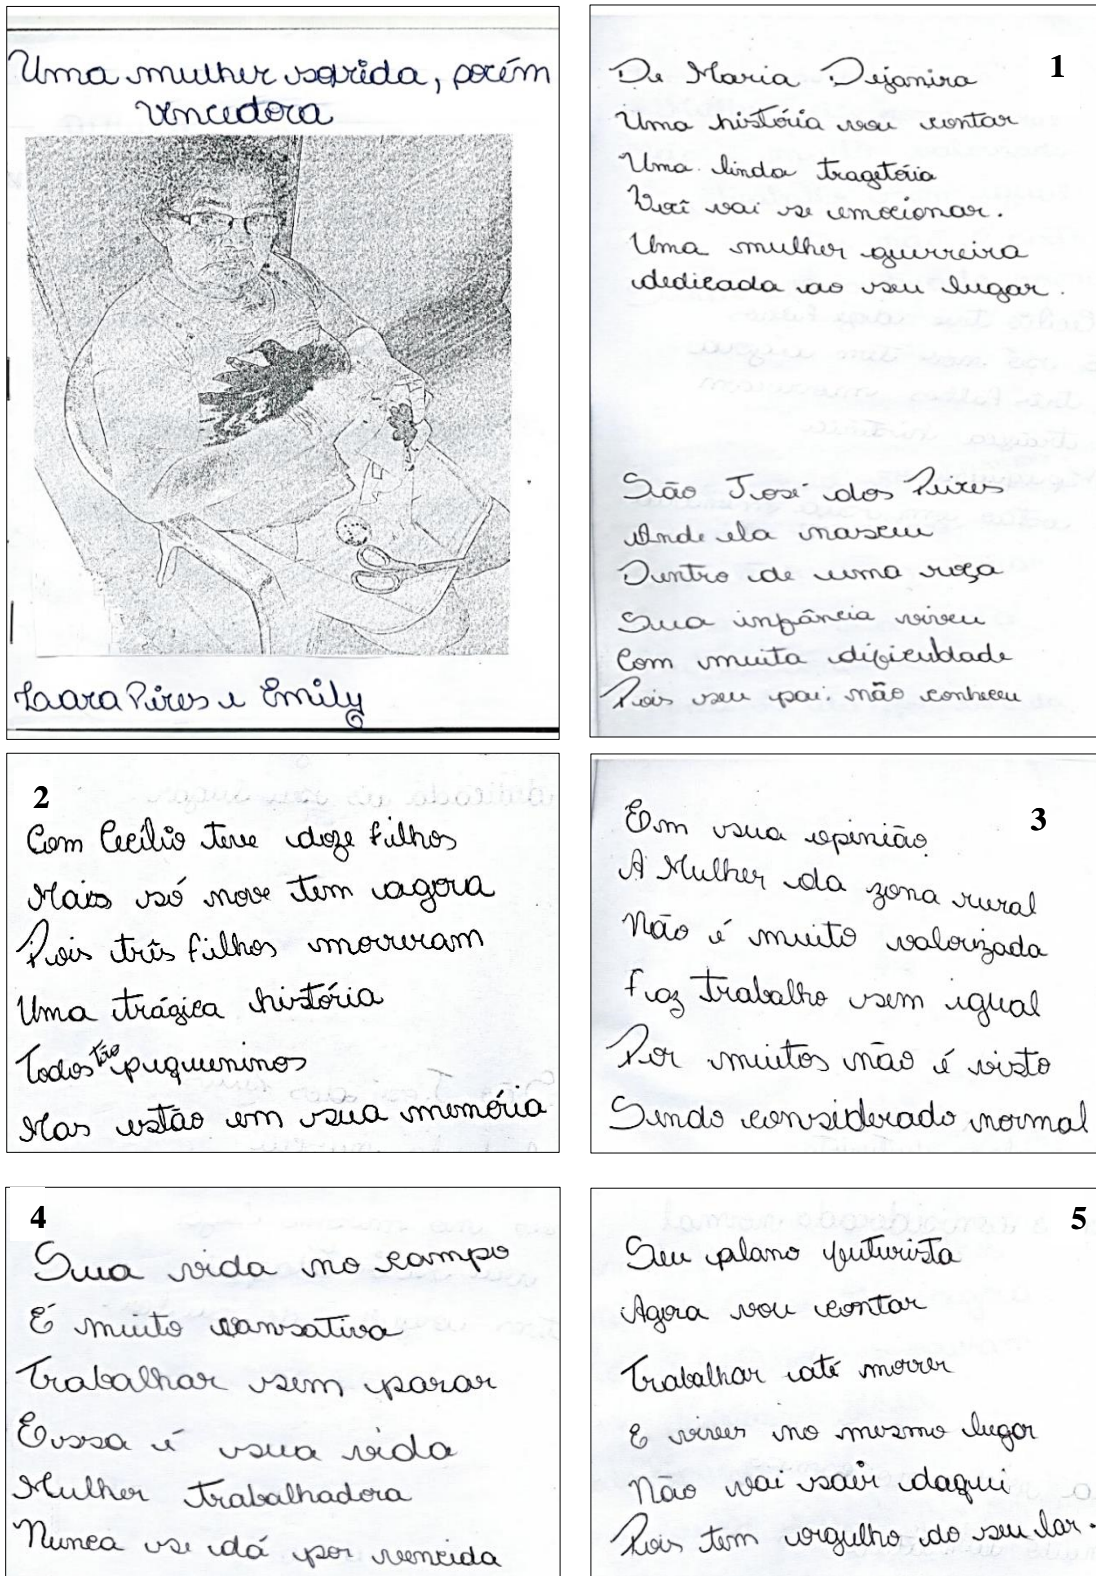 Uma mulher sofrida, porém
vencedora
Laara Pires e Emily
1
De Maria Dejanira
Uma história vou contar
Uma linda tragetória
Você vai se emocionar.
Uma mulher guerreira
dedicada ao seu lugar.
São José dos Pires
Onde ela nasceu
Dentro de uma roça
Sua infância viveu
Com muita dificuldade
Pois seu pai não conheceu
2
Com Cecílio teve doze filhos
Mais só nove tem agora
Pois três filhos morreram
Uma trágica história
Todos tão pequeninos
Mas estão em sua memória
3
Em sua opinião
A Mulher da zona rural
Não é muito valorizada
Faz trabalho sem igual
Por muitos não é visto
Sendo considerado normal
4
Sua vida no campo
É muito cansativa
Trabalhar sem parar
Essa é sua vida
Mulher trabalhadora
Nunca se dá por vencida
5
Seu plano futurista
Agora vou contar
Trabalhar até morrer
E viver no mesmo lugar
Não vai sair daqui
Pois tem orgulho do seu lar.